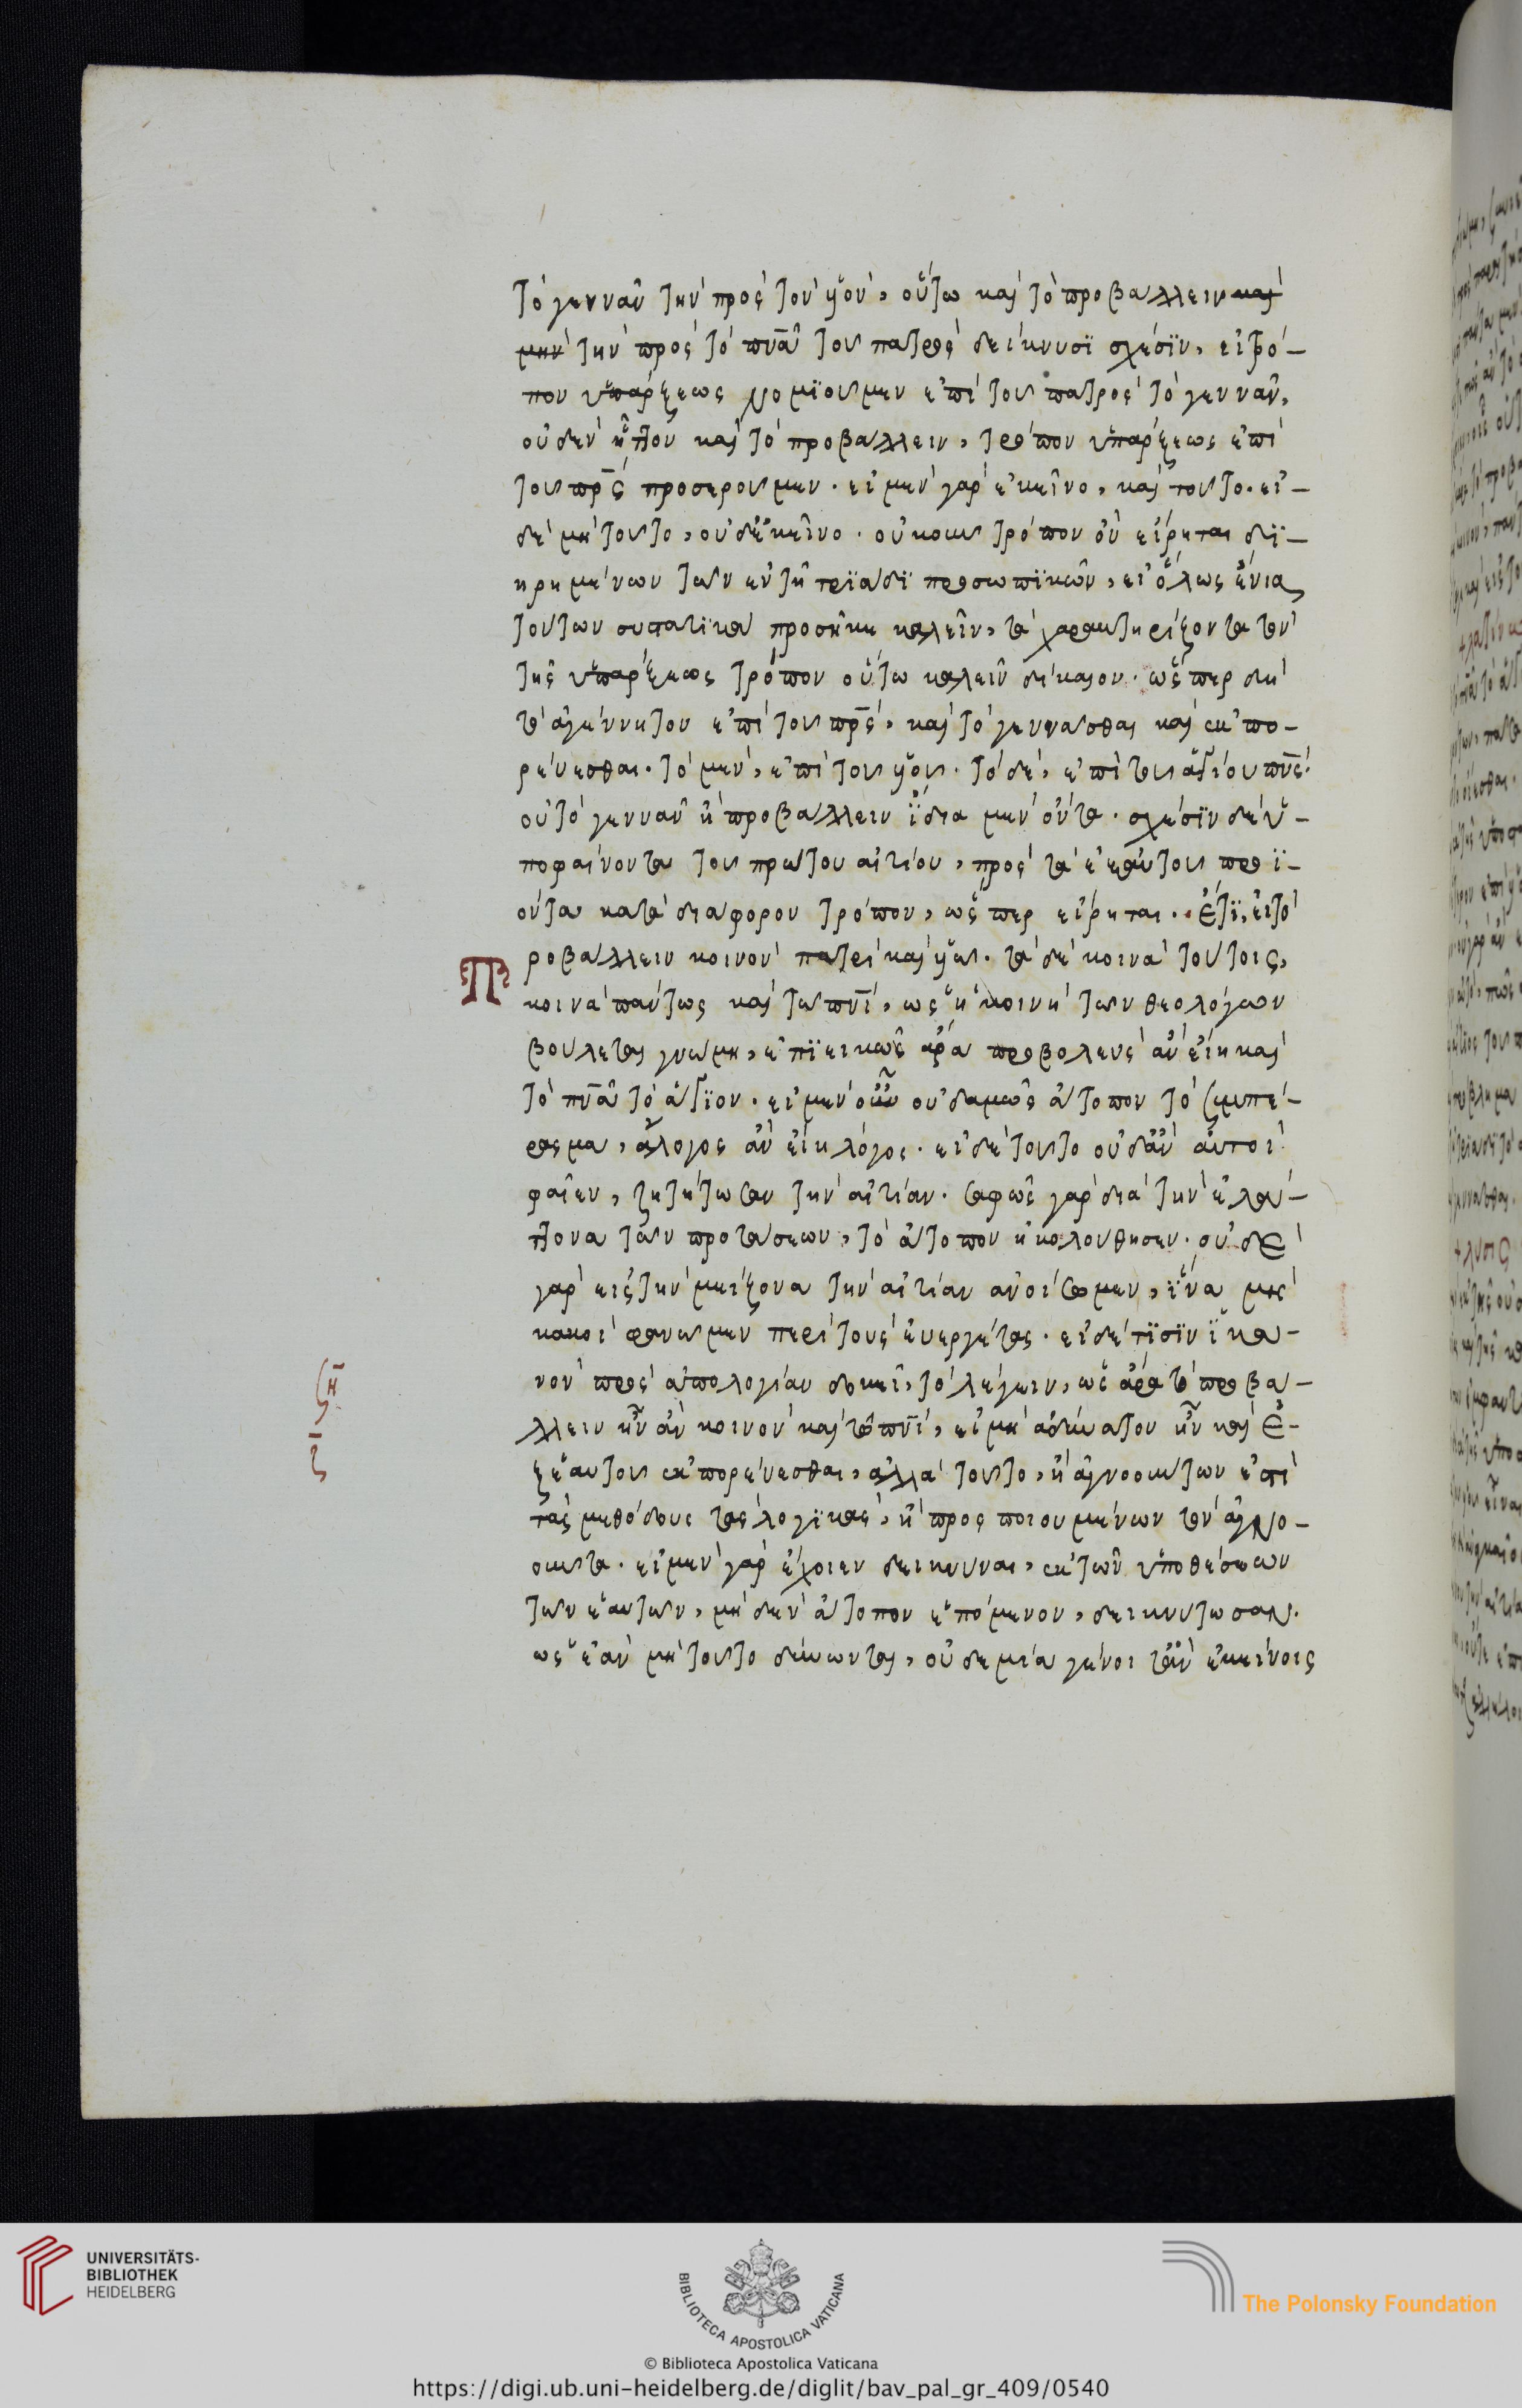 τὸ γεννᾶν τὴν πρὸς τὸν υἱὸν, οὕτω καὶ τὸ προβάλλειν καὶ
μὴν τὴν πρὸς τὸ πνᾶ τοῦ πατρὸς δείκνυσϊ σχέσϊν, εἰ τρό-
πον ὑπάρξεως νομϊοῦμεν ἐπὶ τοῦ πατρὸς τὸ γεννᾶν,
οὐδὲν ἧττον καὶ τὸ προβάλλειν, τρόπον ὑπάρξεως ἐπὶ
τοῦ πρ̅ς προσεροῦμεν. εἰ μὲν γὰρ ἐκεῖνο, καὶ τοῦτο. εἰ-
δὲ μὴ τοῦτο, οὐδ' ἐκεῖνο. οὐκοῦν τρόπον ὃν εἴρηται δϊ-
ηρημένων τῶν ἐν τῇ τρϊάδϊ προσωπϊκῶν, εἰ ὅλως ἔνια
τούτων συστατϊκὰ προσῆκε καλεῖν, τὰ χαρακτηρίζοντα τὸν
τῆς ὑπάρξεως τρόπον οὕτω καλεῖν δίκαιον. ὥσπερ δὴ
τὸ ἀγέννητον ἐπὶ τοῦ πρ̅ς, καὶ τὸ γεννᾶσθαι καὶ ἐκπο-
ρεύεσθαι. τὸ μὲν, ἐπὶ τοῦ υἱοῦ. τὸ δὲ, ἐπὶ τοῦ ἁγίου πν̅ς.
οὐ τὸ γεννᾶν ἢ προβάλλειν ἴδια μὲν ὄντα. σχέσϊν δὲ ὑ-
ποφαίνοντα τοῦ πρώτου αἰτίου, πρὸς τὰ ἐξ αὐτοῦ προϊ-
όντα κατὰ διάφορον τρόπον, ὥσπερ εἴρηται. Ἔτϊ, εἰ τὸ
Προβάλλειν κοινὸν πατρὶ καὶ υἱῷ. τὰ δὲ κοινὰ τούτοις,
κοινὰ πάντως καὶ τῷ πνι̅, ὡς ἡ κοινὴ τῶν θεολόγων
βούλεται γνώμη, ἐπϊεικῶς ἄρα προβολεὺς ἂν εἴη καὶ
τὸ πνᾶ τὸ ἅγϊον. εἰ μὲν οὖν οὐδαμῶς ἄτοπον τὸ συμπέ-
ρασμα, ἄλογος ἂν εἴη λόγος. εἰ δὲ τοῦτο οὐδ' ἂν αὐτοὶ
φαῖεν, ζητήτωσαν τὴν αἰτίαν. σαφῶς γὰρ διὰ τὴν ἐλάτ-
τονα τῶν προτάσεων, τὸ ἄτοπον ἠκολούθησεν. οὐδὲ
γὰρ εἰς τὴν μείζονα τὴν αἰτίαν ἀνοίσομεν, ἵνα μὴ
κακοὶ φανῶμεν περὶ τοὺς εὐεργέτας. εἰ δέ τϊσϊν ἱκα-
νὸν πρὸς ἀπολογίαν δοκεῖ, τὸ λέγειν, ὡς ἄρα τὸ προβά-
λλειν ἦν ἂν κοινὸν καὶ τῷ πνι̅, εἰ μὴ ἀδύνατον ἦν καὶ ἐ-
ξ ἑαυτοῦ ἐκπορεύεσθαι, ἀλλὰ τοῦτο, ἢ ἀγνοούντων ἐστὶ
τὰς μεθόδους τὰς λογϊκὰς, ἢ προσποιουμένων τὸν ἀγνο-
οῦντα. εἰ μὲν γὰρ ἔχοιεν δεικνύναι, ἐκ τῶν ὑποθέσεων
τῶν ἑαυτῶν, μηδὲν ἄτοπον ἑπόμενον, δεικνύτωσαν.
ὡς ἐὰν μὴ τοῦτο δύωνται, οὐδεμία γένοιτ' ἂν ἐκείνοις
UNIVERSITÄTS-
BIBLIOTHEK
HEIDELBERG
BIBLIOTECA APOSTOLICA VATICANA
The Polonsky Foundation
© Biblioteca Apostolica Vaticana
https://digi.ub.uni-heidelberg.de/diglit/bav_pal_gr_409/0540